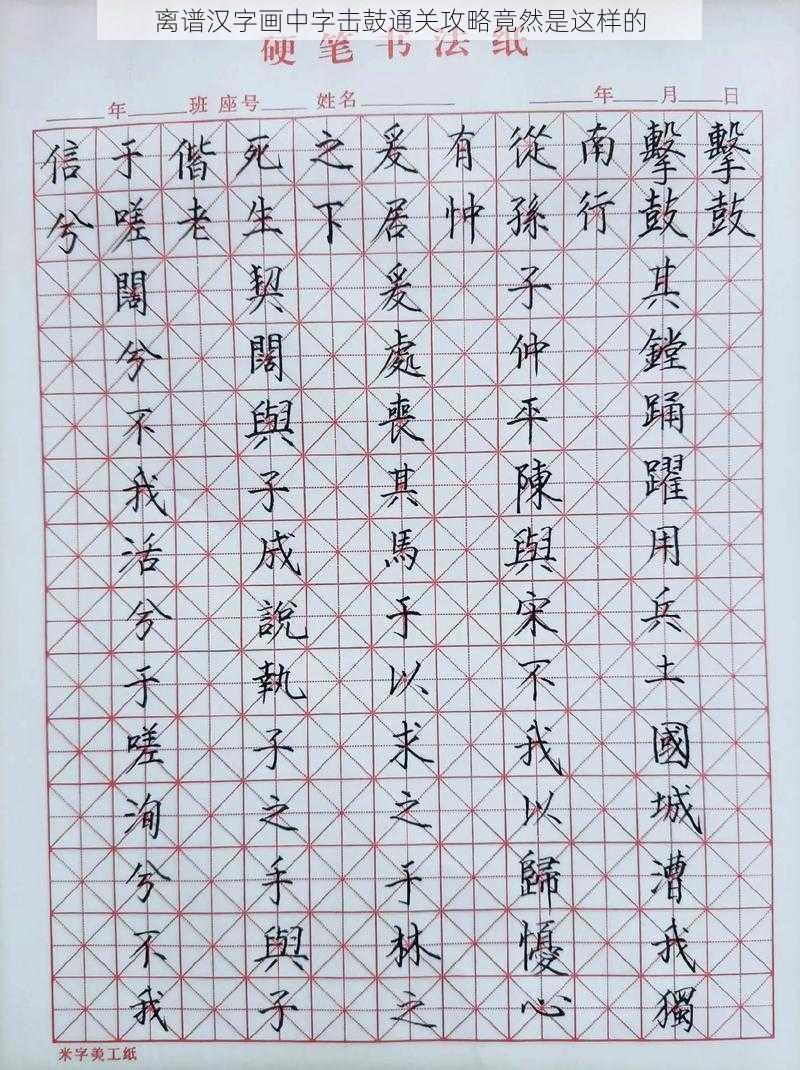 离谱汉字画中字击鼓通关攻略竟然是这样的
硬笔书法纸
年 班 座号 姓名 年 月 日
擊鼓
擊鼓其鏜踊躍用兵土國城漕我獨
南行
從孫子仲平陳與宋不我以歸懮心
有忡
爰居爰處喪其馬于以求之于林之
之下
死生契闊與子成說執子之手與子
偕老
于嗟闊兮不我活兮于嗟洵兮不我
信兮
米字美工纸